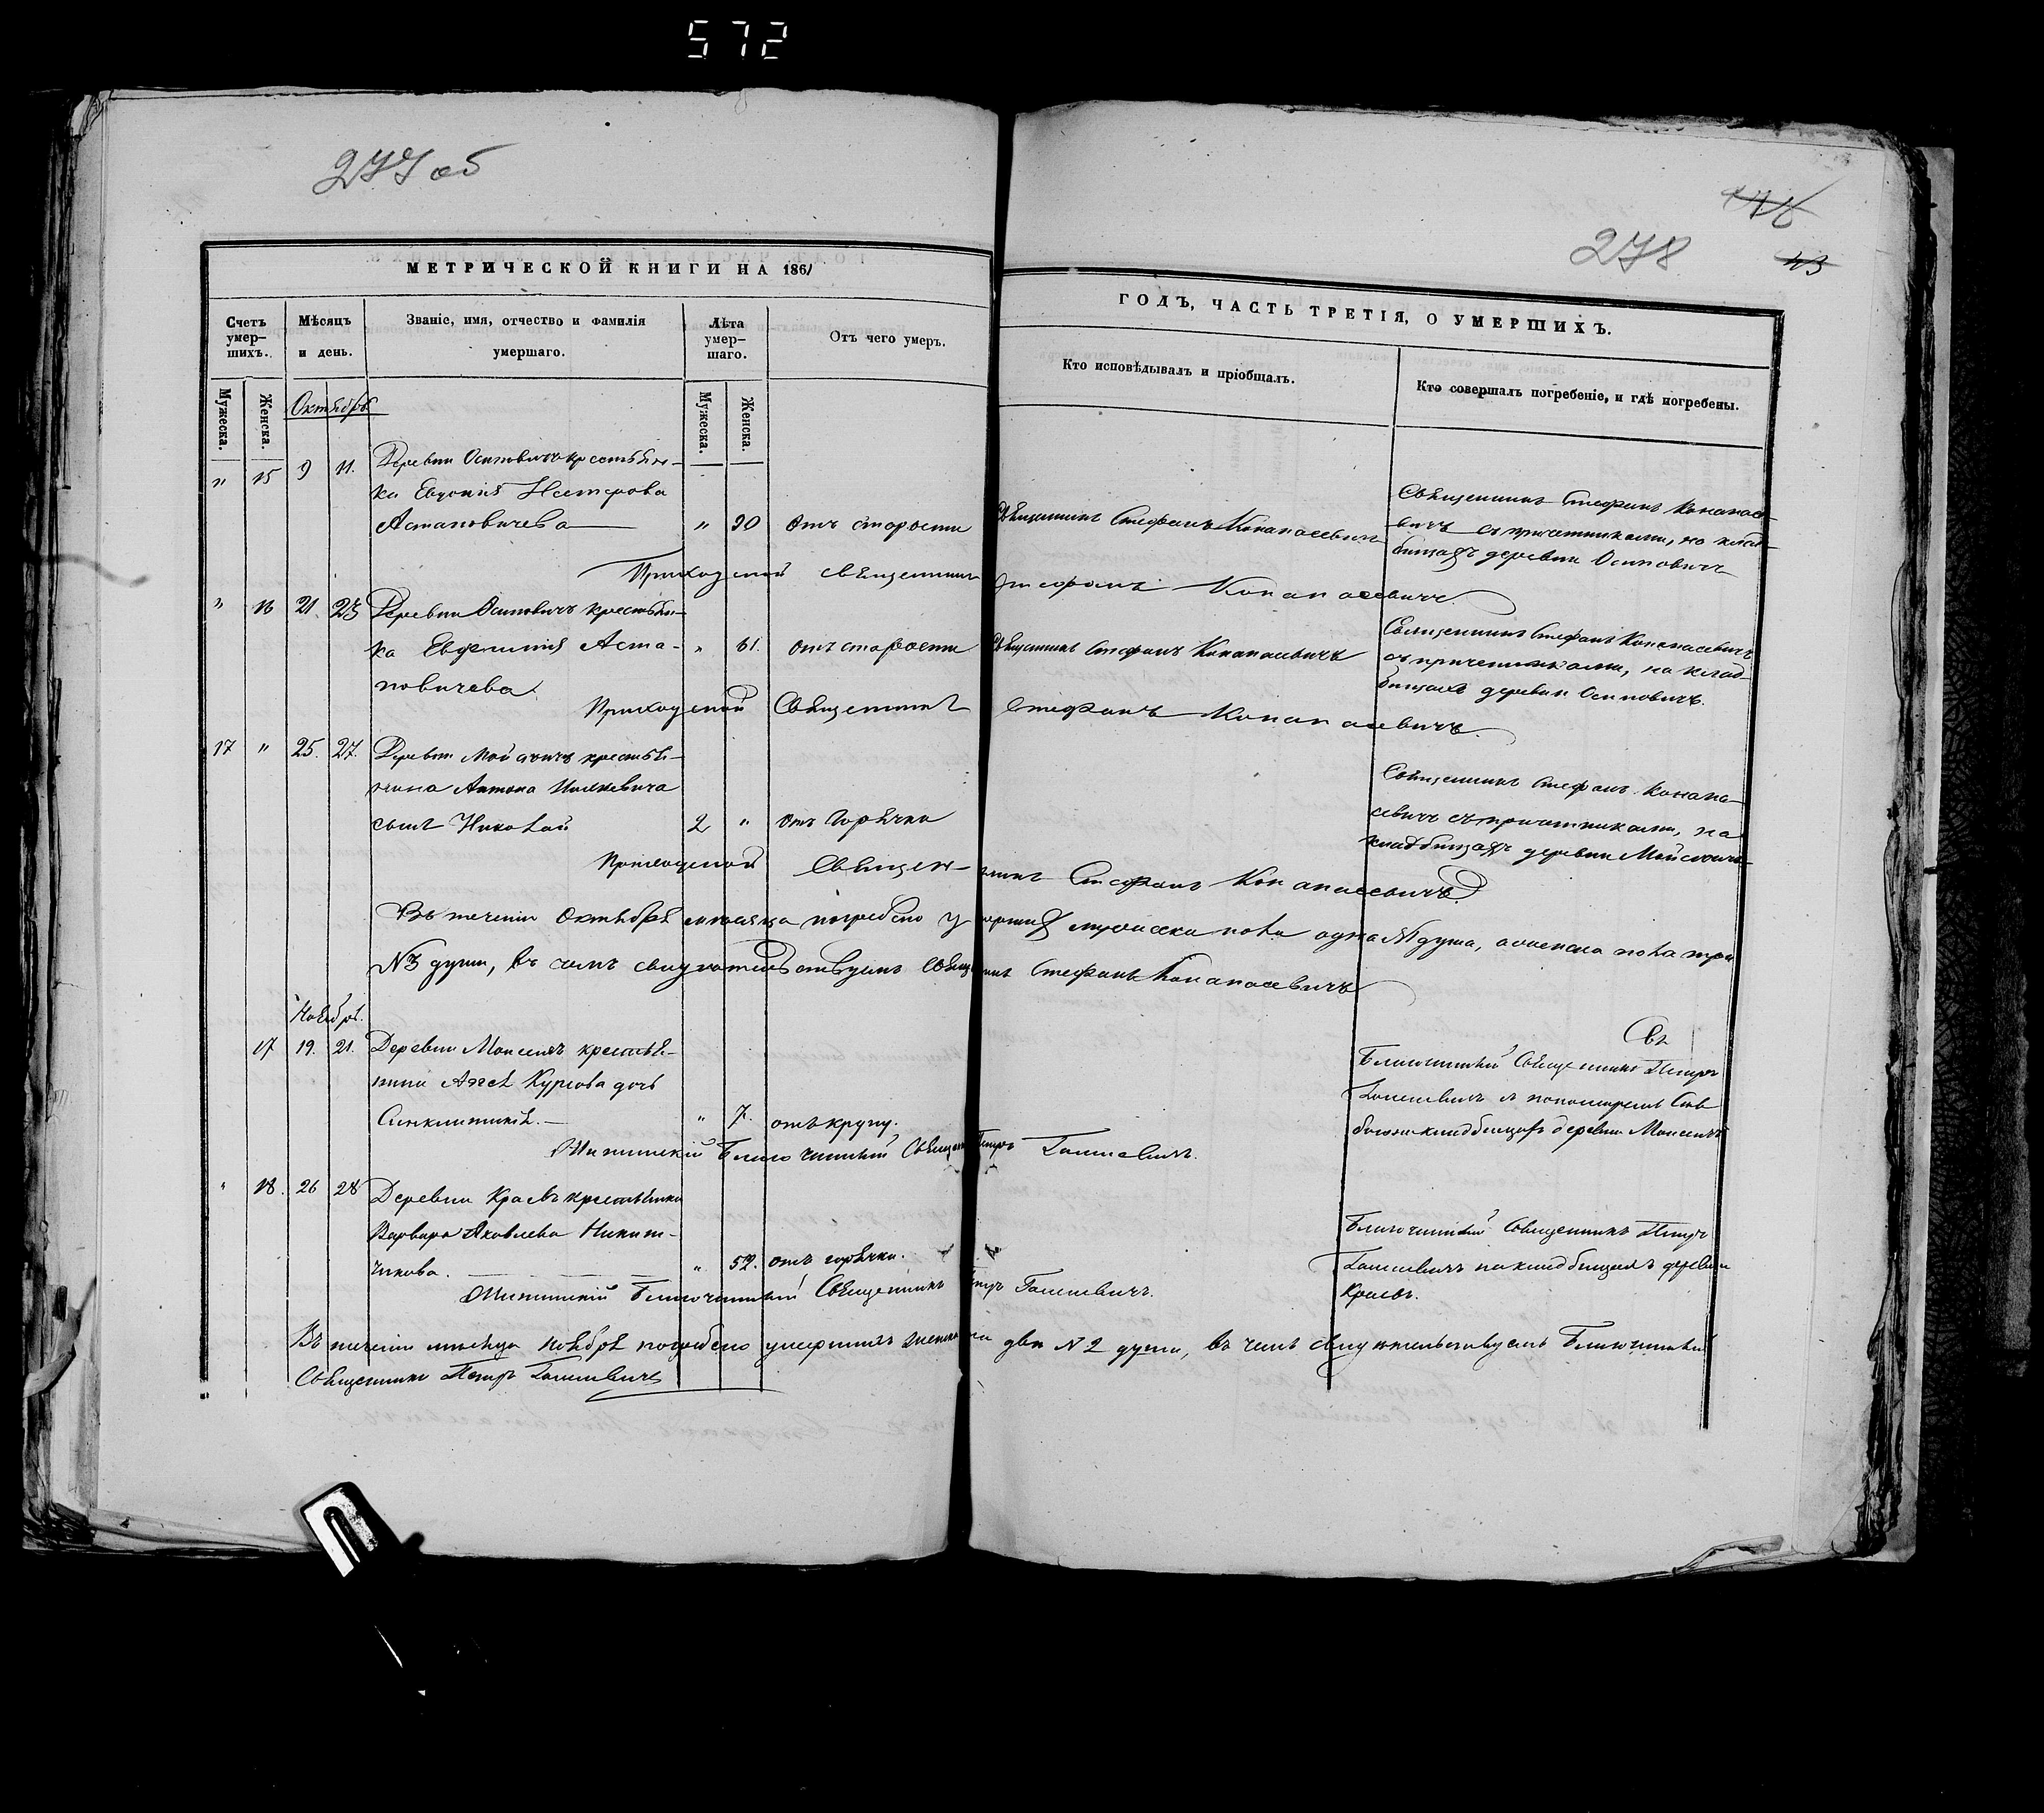 572
277 об
278
43
МЕТРИЧЕСКОЙ КНИГИ НА 1861
ГОДЪ, ЧАСТЬ ТРЕТІЯ, О УМЕРШИХЪ.
Счетъ умер-шихъ.
Мѣсяцъ и день.
Званіе, имя, отчество и фамилія умершаго.
Лѣта умер-шаго.
Отъ чего умеръ.
Кто исповѣдывалъ и пріобщалъ.
Кто совершалъ погребеніе, и гдѣ погребены.
Мужеска.
Женска.
Октябрь
Мужеска.
Женска.
" 15 9 11. Деревни Осиповичъ крестьян-
ка Евдокія Нестерова
Астаповичева " 90 отъ старости Священникъ Стефанъ Конапасевичъ
Священникъ Стефанъ Конапасе-
вичъ съ причетниками, на клад-
бищахъ деревни Осиповичъ
Приходской священникъ Стефанъ Конапасевичъ.
" 16 21. 23 Деревни Осиповичъ крестьян-
ка Евгенія Аста- " 61. отъ старости Священникъ Стефанъ Конапасевичъ
повичева
Священникъ Стефанъ Конапасевичъ
съ причетниками, на клад-
бищахъ деревни Осиповичъ.
Приходской Священникъ Стефанъ Конапасевичъ.
17 " 25. 27. Деревни крестья-
нина Антона
сынъ Николай 2 " отъ горячки
Священникъ Стефанъ Конапа-
севичъ съ причетниками, на
кладбищахъ деревни
Приходской Священникъ Стефанъ Конапасевичъ
Въ теченіи Октября мѣсяца погребено умершихъ мужеска пола одна №1 душа, а женска пола три
№3 души, въ чемъ свидѣтельствуетъ Священникъ Стефанъ Конапасевичъ
Ноябрь.
17 19. 21. Деревни крестья-
нина Курсова дочь
Синклитикія. " 7. отъ крупу.
Св
Благочинный Священникъ Петръ
на кладбищахъ деревни
Благочинный Священникъ Петръ
" 18. 26 28 Деревни Краевъ крестьянка
Варвара Яковлева Никит-
чикова. " 52. отъ горячки.
Благочинный Священникъ Петръ
на кладбищахъ деревни
Краевъ.
Благочинный Священникъ Петръ
Въ теченіи мѣсяца ноября погребено умершихъ двѣ №2 души, въ чемъ свидѣтельствуетъ Благочинный
Священникъ Петръ